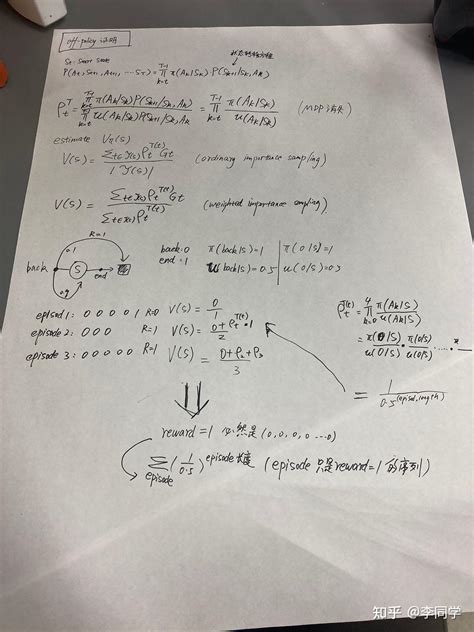 off-policy
St: start state
状态转移方程
P(At, St+1, At+1, ... ST) = ∏_{k=t}^{T-1} π(Ak|Sk) P(Sk+1|Sk, Ak)
ρ_t^T = ∏_{k=t}^{T-1} π(Ak|Sk) P(Sk+1|Sk, Ak) / ∏_{k=t}^{T-1} u(Ak|Sk) P(Sk+1|Sk, Ak) = ∏_{k=t}^{T-1} π(Ak|Sk) / u(Ak|Sk) (MDP
estimate Vπ(s)
V(s) = Σ_{t∈J(s)} ρ_t^{T(t)} Gt / |J(s)| (ordinary importance sampling)
V(s) = Σ_{t∈J(s)} ρ_t^{T(t)} Gt / Σ_{t∈J(s)} ρ_t^{T(t)} (weighted importance sampling)
R=1
0.1
back S end
0.9
back: 0 π(back|s)=1 π(0|s)=1
end = 1 u(back|s)=0.5 u(0|s)=0.5
episod 1: 0 0 0 0 1 R=0 V(s) = 0/1
episode 2: 0 0 0 R=1 V(s) = 0+ρ_t^{T(t)}·1 / 2
episode 3: 0 0 0 0 0 R=1 V(s) = 0+ρ2+ρ3 / 3
ρ_t^{T(t)} = ∏_{k=0}^{4} π(Ak|S) / u(Ak|S)
= π(0|S)/u(0|S) · π(0|S)/u(0|S) .....
= 1 / 0.5^(episod.length)
reward=1 必然是 (0, 0, 0, 0 ...0)
Σ_{episode} (1/0.5)^{episode长度} (episode 只是reward=1 的序列)
知乎 @李同学